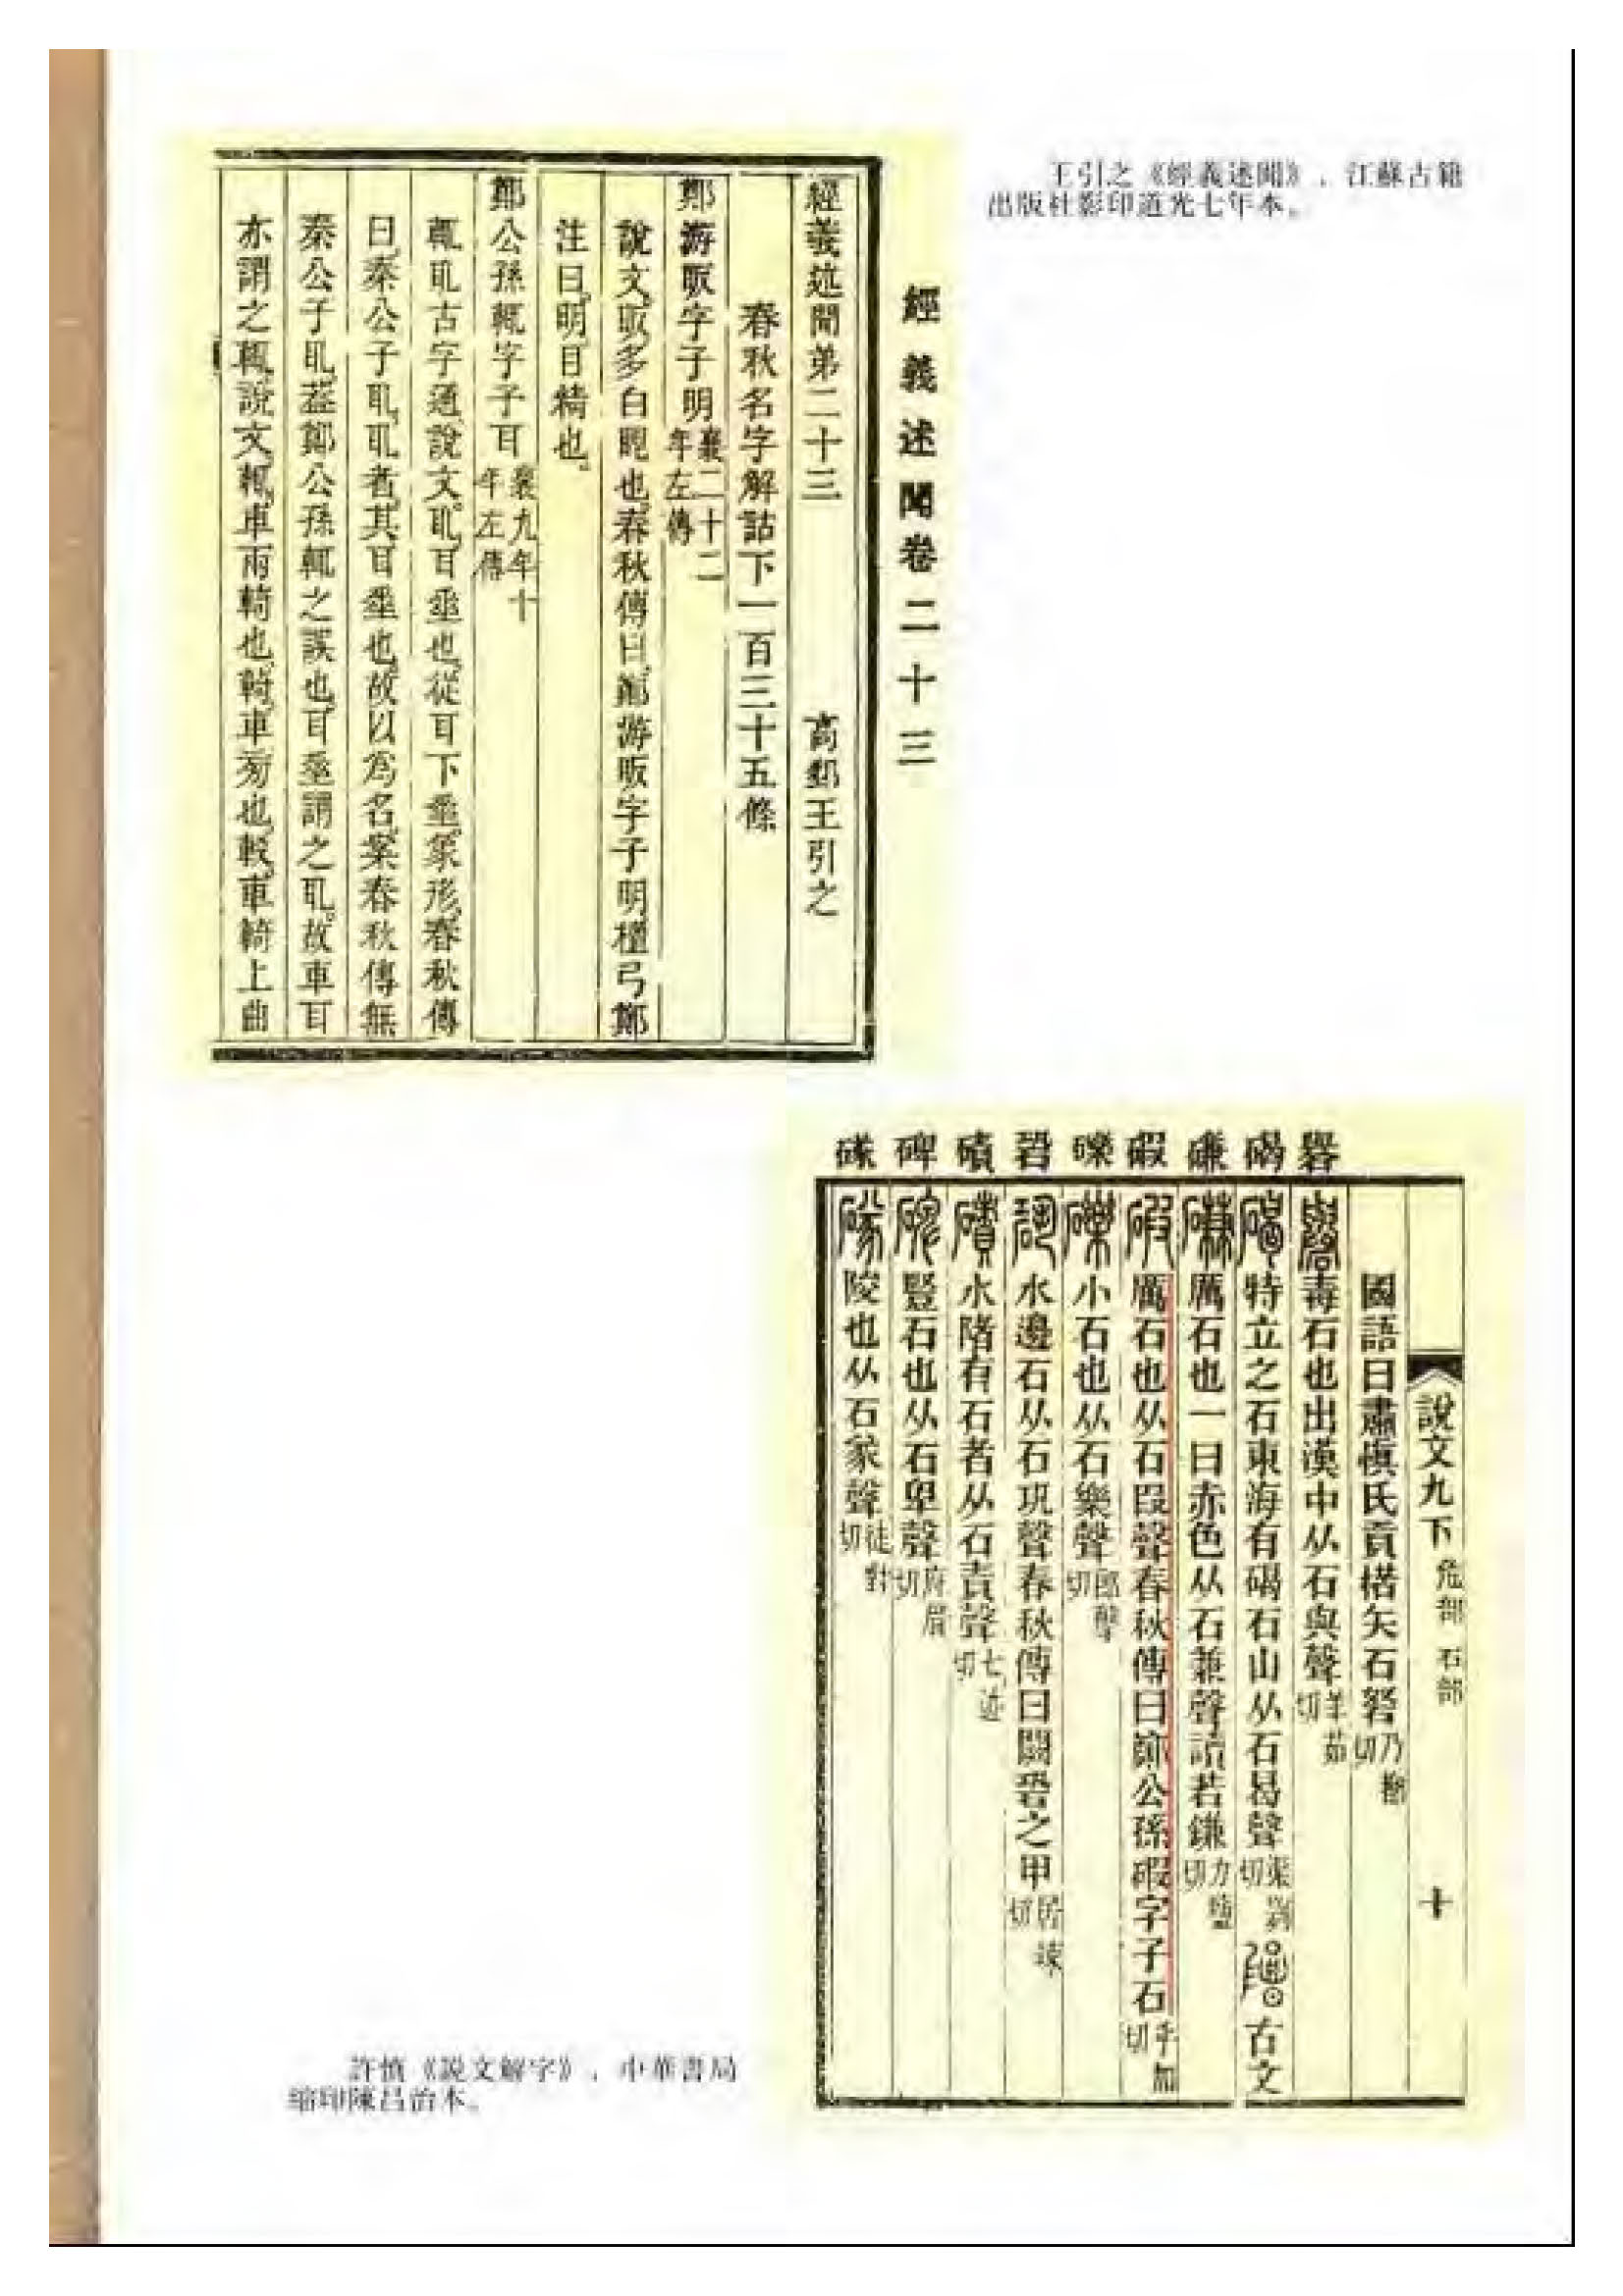 王引之《經義述聞》，江蘇古籍
出版社影印道光七年本。
經義述聞卷二十三
經義述聞弟二十三　高郵王引之
春秋名字解詁下一百三十五條
鄭游販字子明襄二十二年左傳
說文販多白眼也春秋傳曰鄭游販字子明檀弓鄭
注曰明目精也
鄭公孫輒字子耳襄九年十年左傳
輒耴古字通說文耴耳垂也從耳下垂象形春秋傳
曰秦公子耴耴者其耳垂也故以為名案春秋傳無
秦公子耴葢鄭公孫輒之誤也耳垂謂之耴故車耳
亦謂之輒說文輒車兩輢也輢車旁也較車輢上曲
礜碣磏碬礫硞磧碑磜
說文九下　危部　石部　十
國語曰肅慎氏貢楛矢石砮乃都切
礜毒石也出漢中从石與聲羊茹切
碣特立之石東海有碣石山从石曷聲渠列切　古文
磏厲石也一曰赤色从石兼聲讀若鎌力鹽切
碬厲石也从石叚聲春秋傳曰鄭公孫碬字子石乎加切
礫小石也从石樂聲郎擊切
水邊石从石巩聲春秋傳曰闕之甲居竦切
磧水陼有石者从石責聲七迹切
碑豎石也从石卑聲府眉切
陵也从石㒸聲徒對切
許慎《説文解字》，中華書局
缩印陳昌治本。